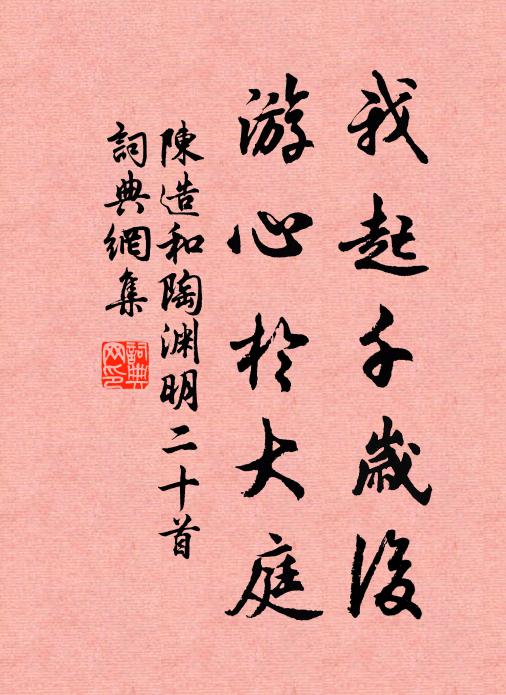 我起千歲後
游心於大庭
陳造和陶淵明二十首
詞典網集
詞典
网印